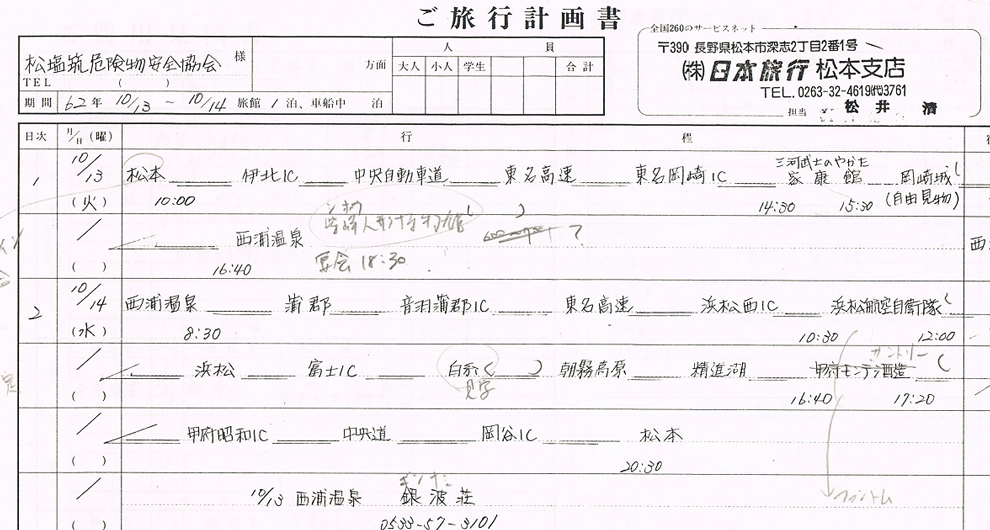 ご旅行計画書
松塩筑危険物安全協会 様
TEL ( )
方面
人員
大人 小人 学生 合計
期間 62年 10/13 ~ 10/14 旅館 1泊、車船中 泊
全国260のサービスネット
〒390 長野県松本市深志2丁目2番1号
(株)日本旅行 松本支店
TEL. 0263-32-4619(代)3761
担当 松井 清
日次 月/日(曜) 行程
1 10/13 (火) 松本 伊北IC 中央自動車道 東名高速 東名岡崎IC 三河武士のやかた 家康館 岡崎城 (自由見物)
10:00 14:30 15:30
西浦温泉
16:40 宴会 18:30
2 10/14 (水) 西浦温泉 蒲郡 音羽蒲郡IC 東名高速 浜松西IC 浜松航空自衛隊
8:30 10:30 12:00
サントリー
浜松 富士IC 白糸 ( ) 朝霧高原 精進湖 甲府モンデ酒造
見学 16:40 17:20
甲府昭和IC 中央道 岡谷IC 松本
20:30
ギンナミ
10/13 西浦温泉 銀波荘
0533-57-3101
ファントム